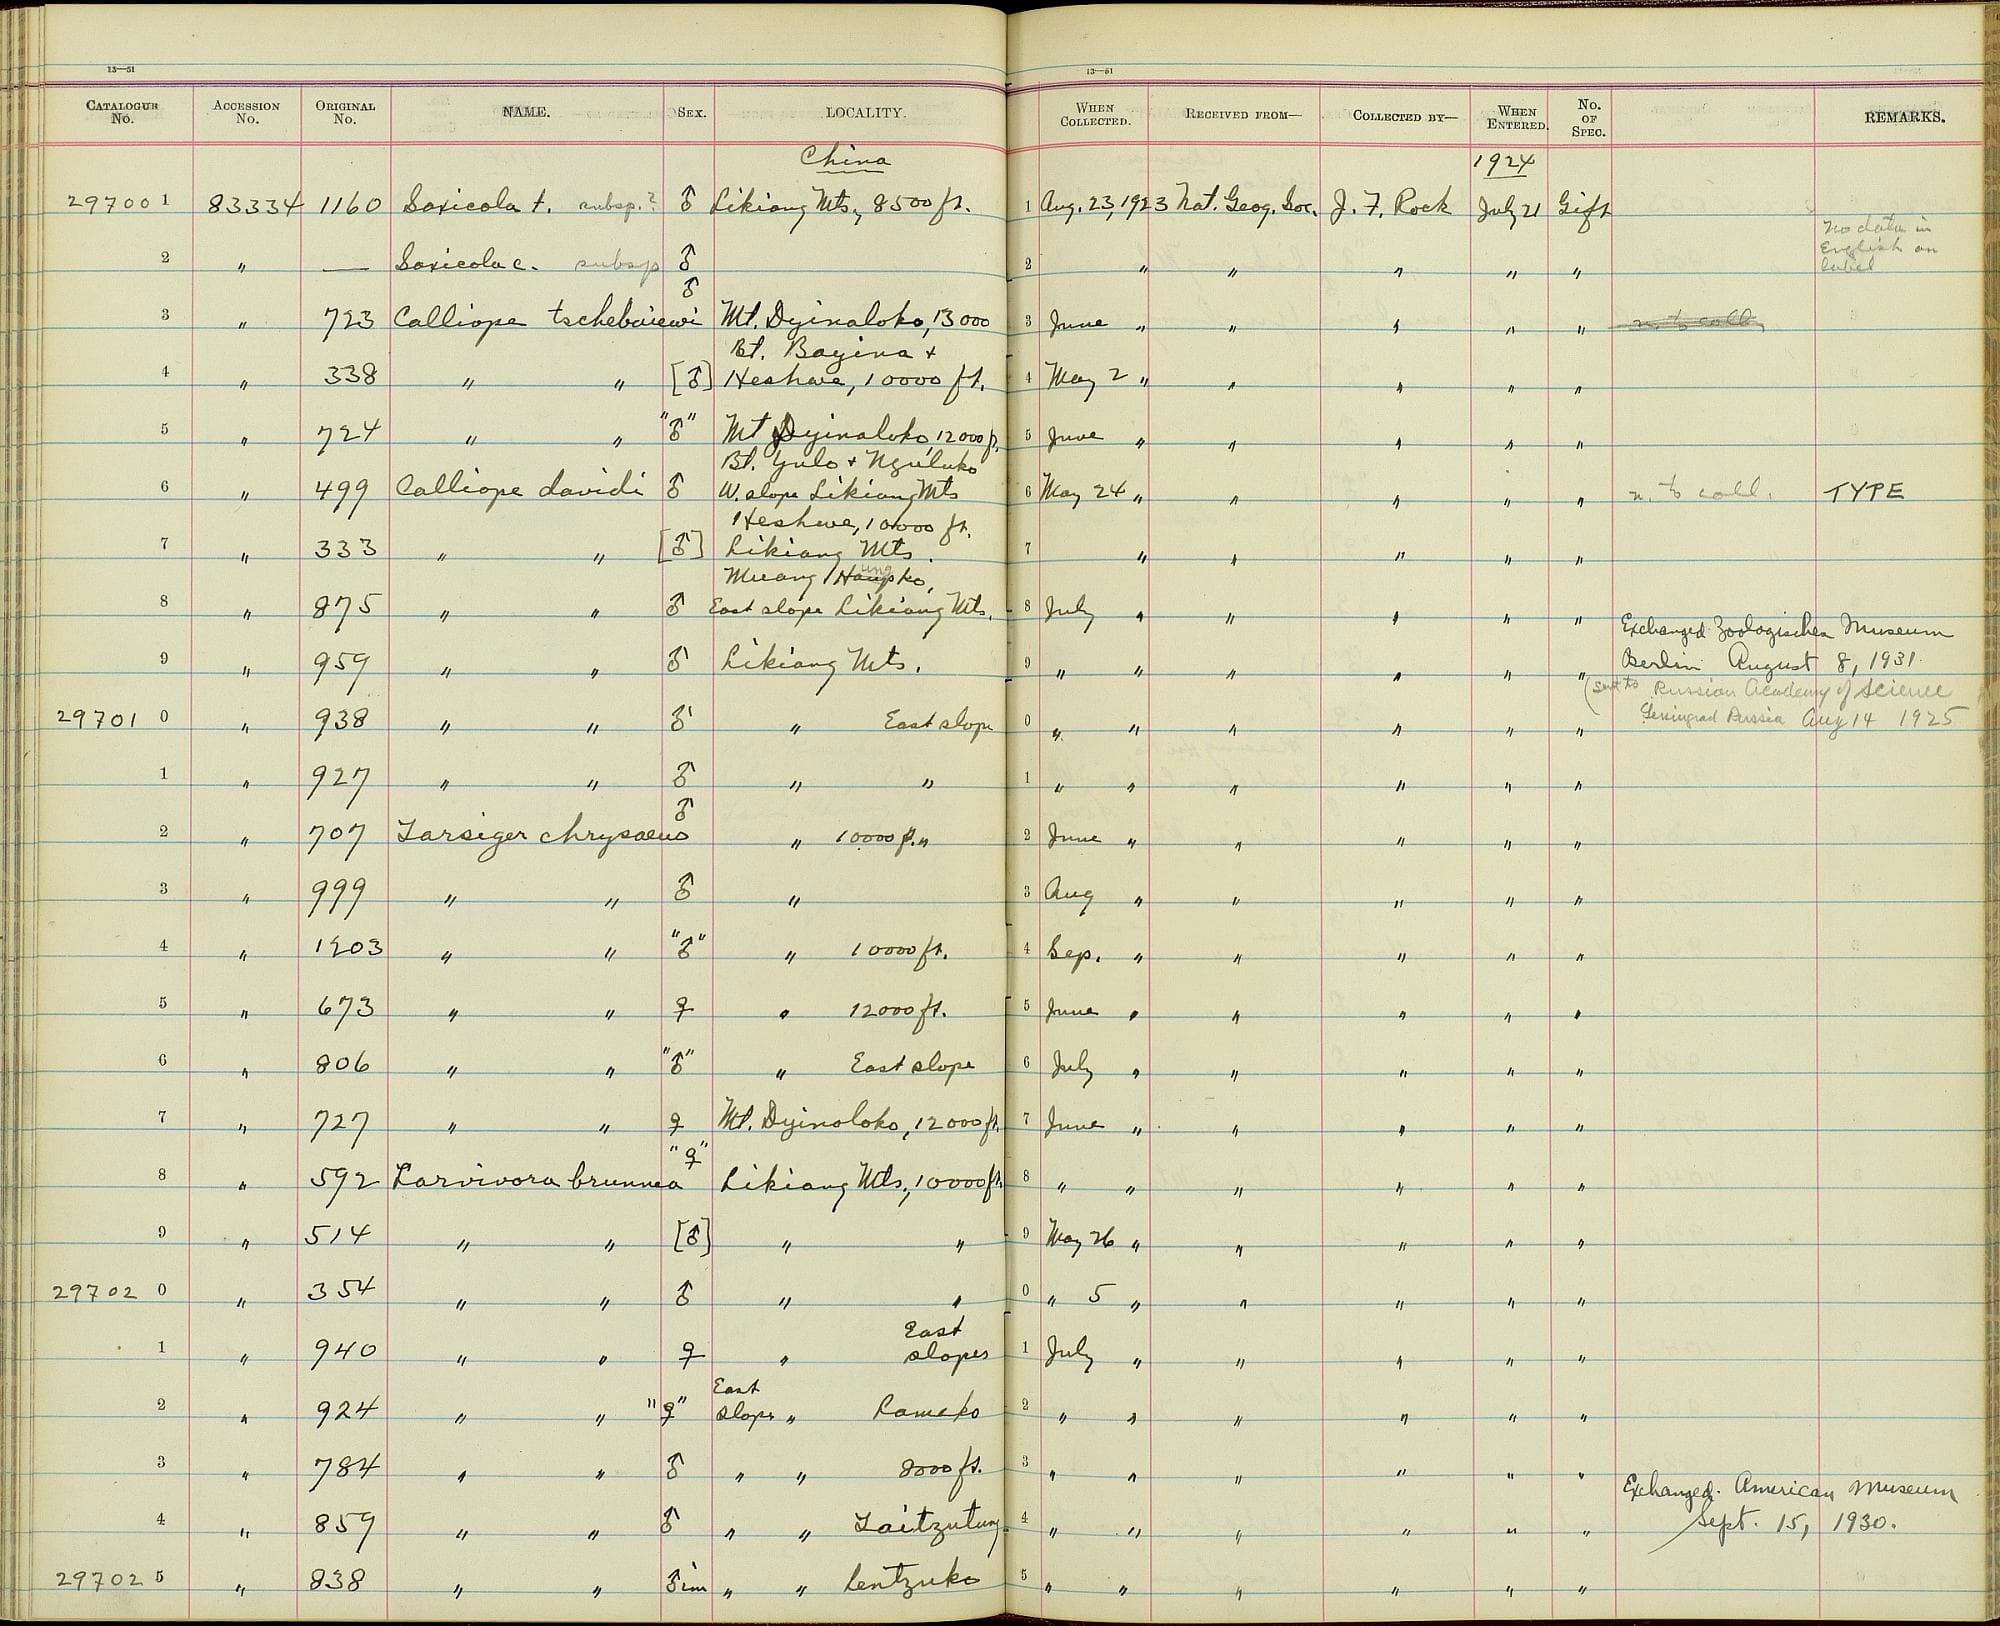 13—51 13—51
CATALOGUE No. ACCESSION No. ORIGINAL No. NAME. SEX. LOCALITY. WHEN COLLECTED. RECEIVED FROM— COLLECTED BY— WHEN ENTERED. No. OF SPEC. REMARKS.
China 1924
29700 1 83334 1160 Saxicola t. subsp.? ♂ Likiang Mts., 8500 ft. 1 Aug. 23, 1923 Nat. Geog. Soc. J. F. Rock July 21 Gift
No data in
English on
label
2 " — Saxicola c. subsp ♂ 2 " " " " "
♂
3 " 723 Calliope tschebaiewi Mt. Dyinaloko, 13000 3 June " " " " " n. to coll.
Bt. Bayina +
4 " 338 " " [♂] Heshwe, 10000 ft. 4 May 2 " " " " "
5 " 724 " " "♂" Mt Dyinaloko, 12000 ft. 5 June " " " " "
Bt. Yulo + Nguluko
6 " 499 Calliope davidi ♂ W. slope Likiang Mts 6 May 24 " " " " " n. to coll. TYPE
Heshwe, 10000 ft.
7 " 333 " " [♂] Likiang Mts. 7 " " " " "
Muang Haupko, ung
8 " 875 " " ♂ East slope Likiang Mts. 8 July " " " " "
Exchanged Zoologisches Museum
9 " 959 " " ♂ Likiang Mts. 9 " " " " " " Berlin August 8, 1931.
(Sent to Russian Academy of Science
29701 0 " 938 " " ♂ " East slope 0 " " " " " " Leningrad Russia Aug 14 1925
1 " 927 " " ♂ " " 1 " " " " " "
♂
2 " 707 Tarsiger chrysaeus " 10000 ft. " 2 June " " " " "
3 " 999 " " ♂ " 3 Aug " " " " "
4 " 1203 " " "♂" " 10000 ft. 4 Sep. " " " " "
5 " 673 " " ♀ " 12000 ft. 5 June " " " " "
6 " 806 " " "♂" " East slope 6 July " " " " "
7 " 727 " " ♀ Mt. Dyinaloko, 12000 ft. 7 June " " " " "
"♀"
8 " 592 Larvivora brunnea Likiang Mts., 10000 ft. 8 " " " " " "
9 " 514 " " [♂] " " 9 May 26 " " " " "
29702 0 " 354 " " ♂ " " 0 " 5 " " " " "
East
1 " 940 " " ♀ " slopes 1 July " " " " "
East
2 " 924 " " "♀" slope " Lameko 2 " " " " " "
3 " 784 " " ♂ " " 8000 ft. 3 " " " " " "
Exchanged. American Museum
4 " 859 " " ♂ " " Taitzutung 4 " " " " " " Sept. 15, 1930.
29702 5 " 838 " " ♂ im " " Lentzuko 5 " " " " " "